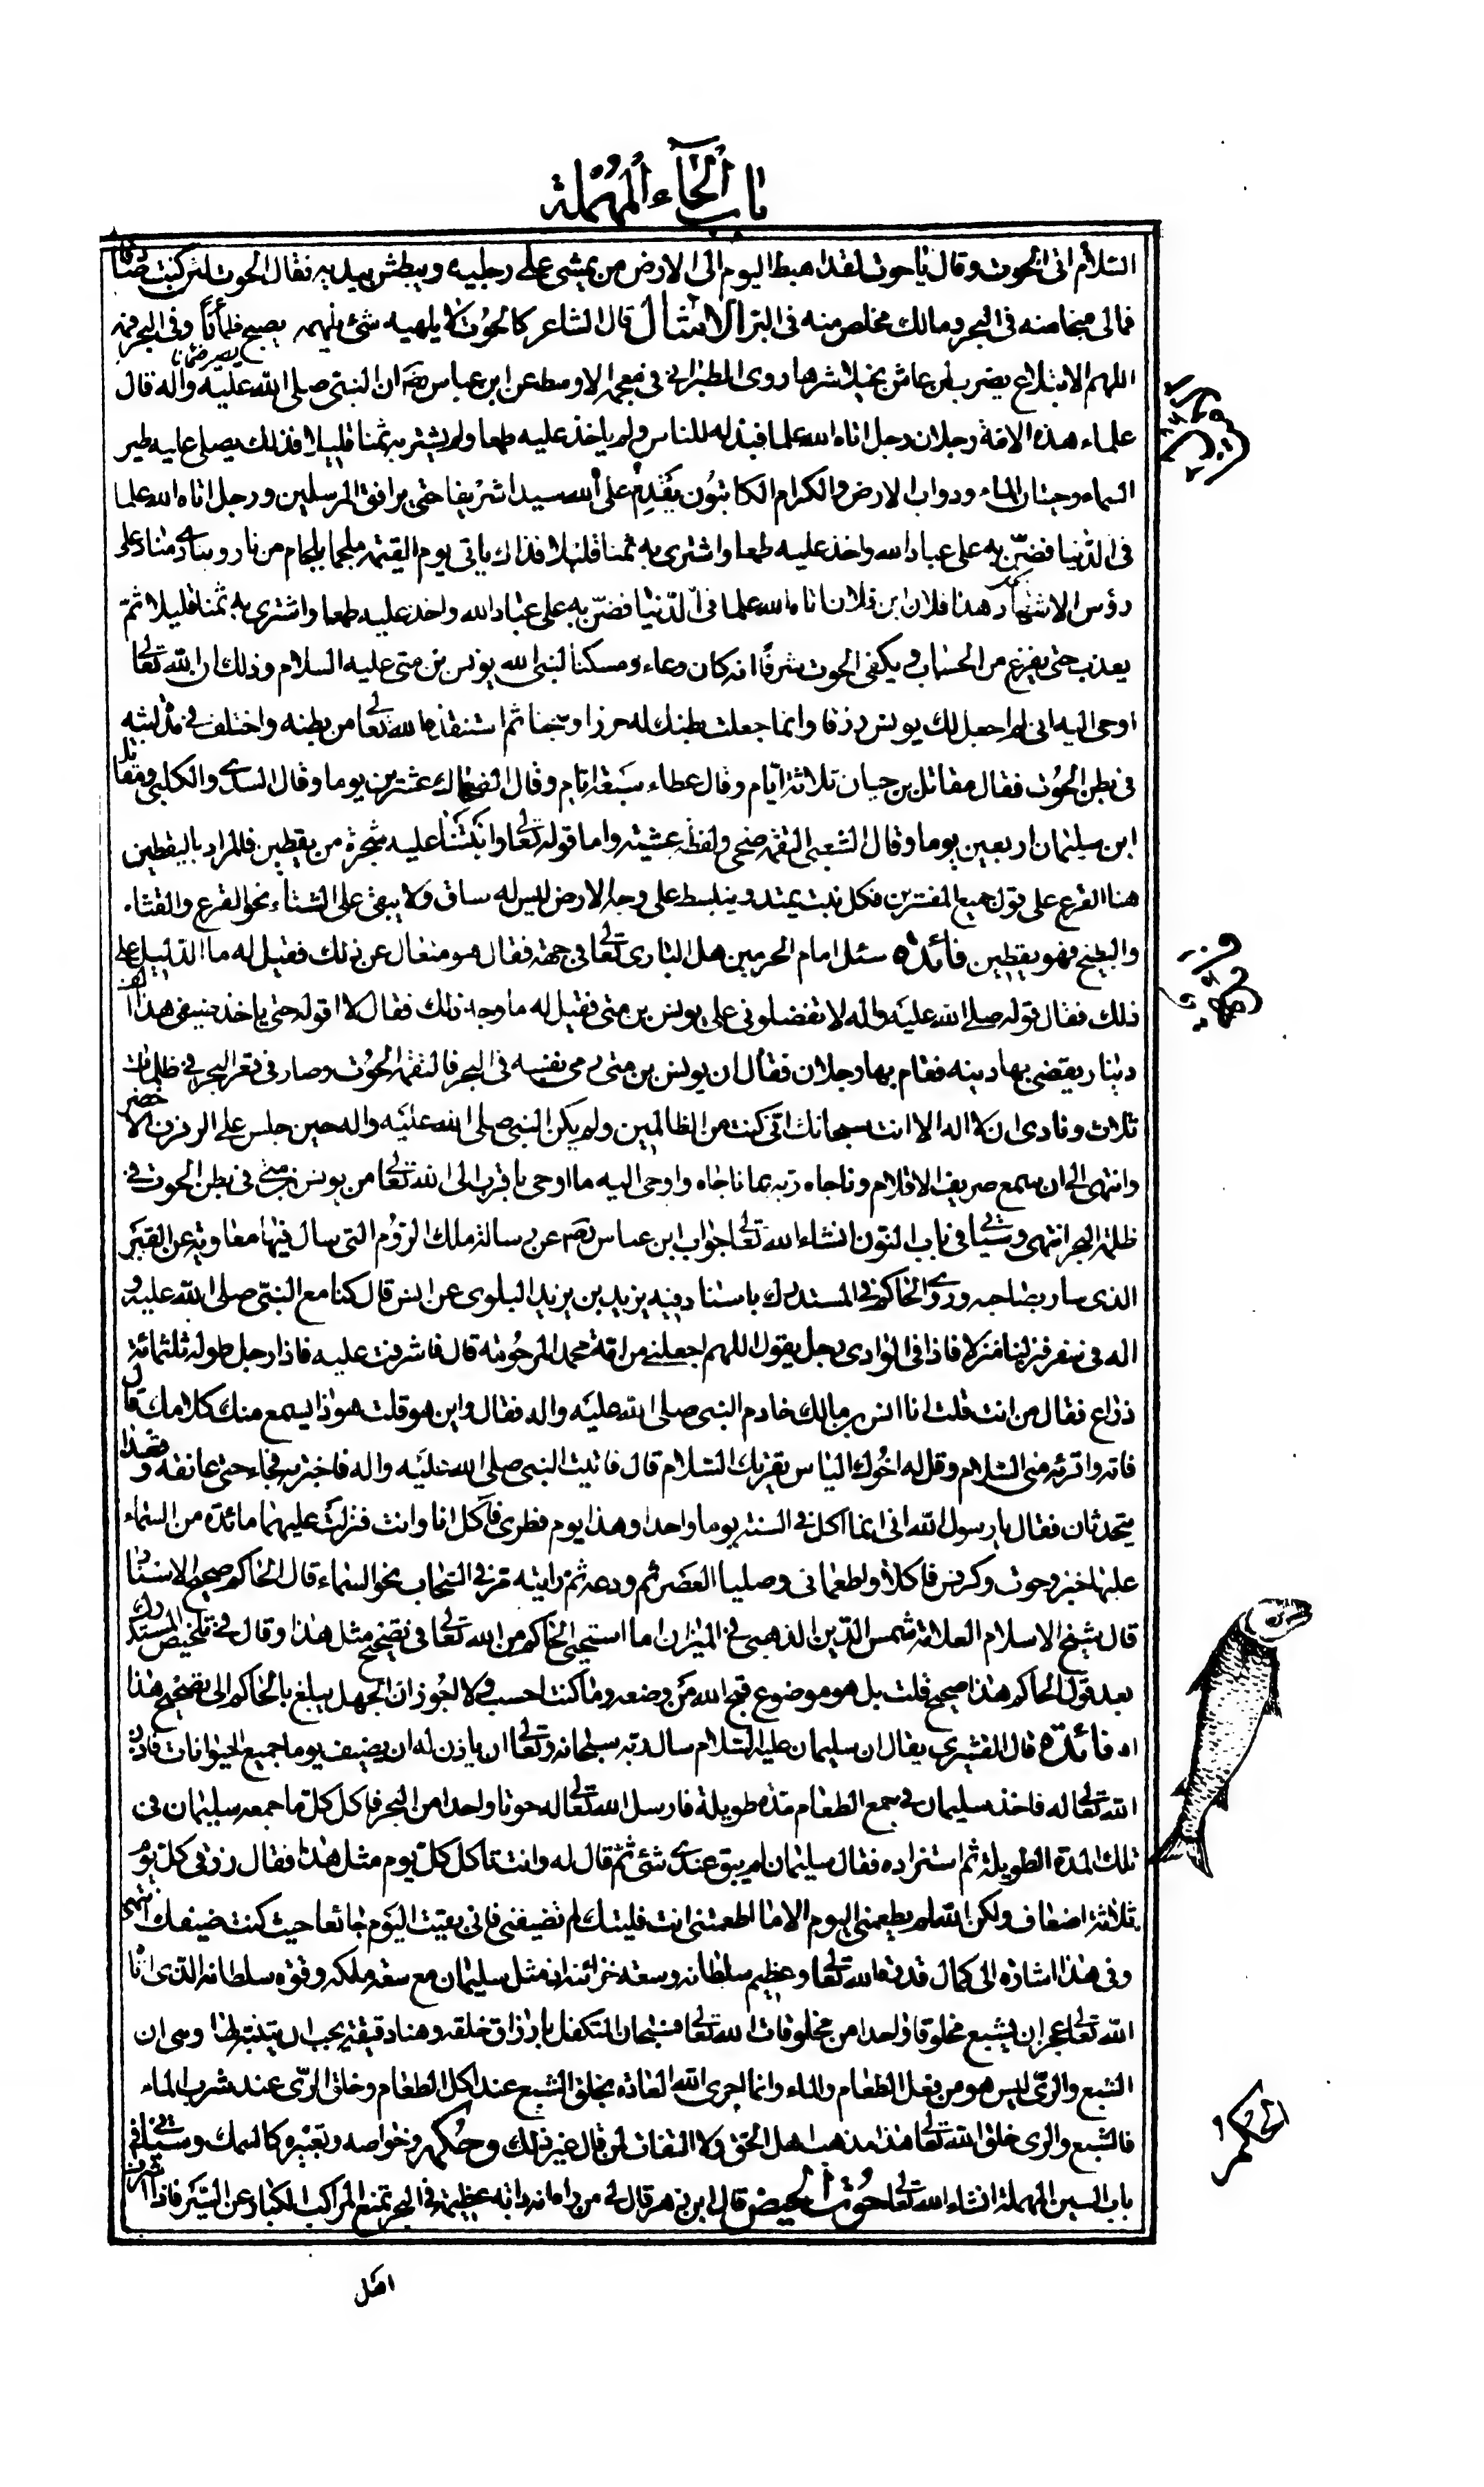 باب الحاء المهملة
السلام اتى الحوت وقال يا حوت لقد اهبط اليوم الى الارض من يمشى على رجليه ويبطش بيديه فقال الحوت لئن كنت صادقا
فمالى منجا منه فى البحر ومالك مخلص منه فى البر الامثال قال الشاعر كالحوت لا يلهيه شئ يلهمه يصبح ظمآنا وفى البحر فمه
اللهم الابتلاع يضرب لمن عاش بخيلا شرها روى الطبرانى فى معجمه الاوسط عن ابن عباس رضه ان النبى صلى الله عليه واله قال
علماء هذه الامة رجلان رجل اتاه الله علما فبذله للناس ولم ياخذ عليه طمعا ولم يشتر به ثمنا قليلا فذلك يصلى عليه طير
السماء وحيتان الماء ودواب الارض والكرام الكاتبون يقدم على الله سيدا شريفا حتى يرافق المرسلين ورجل اتاه الله علما
فى الدنيا فضن به على عباد الله واخذ عليه طمعا واشترى به ثمنا قليلا فذاك ياتى يوم القيمه ملجما بلجام من نار وينادى مناد على
رؤس الاشهاد هذا فلان ابن فلان اتاه الله علما فى الدنيا فضن به على عباد الله واخذ عليه طمعا واشترى به ثمنا قليلا ثم
يعذب حتى يفرغ من الحساب ويكفى الحوت شرفا انه كان وعاء ومسكنا لنبى الله يونس بن متى عليه السلام وذلك ان الله تعالى
اوحى اليه انى لم اجعل لك يونس رزقا وانما جعلت بطنك له حرزا وسجنا ثم استنقذه الله تعالى من بطنه واختلف فى مدة لبثه
فى بطن الحوت فقال مقاتل بن حيان ثلاثة ايام وقال عطاء سبعة ايام وقال الضحاك عشرين يوما وقال السدى والكلبى ومقاتل
ابن سليمان اربعين يوما وقال الشعبى التقمه ضحى ولفظه عشيته واما قوله تعالى وانبتنا عليه شجرة من يقطين فالمراد باليقطين
هنا القرع على قول جميع المفسرين فكل نبت يمتد وينبسط على وجه الارض ليس له ساق ولا يبقى على الشتاء نحو القرع والقثاء
والبطيخ فهو يقطين فائدة سئل امام الحرمين هل البارى تعالى فى جهة فقال هو متعال عن ذلك فقيل له ما الدليل على
ذلك فقال قوله صلى الله عليه واله لا تفضلونى على يونس بن متى فقيل له ما وجه ذلك فقال لا اقوله حتى ياخذ ضيفى هذا الف
دينار يقضى بها دينه فقام بها رجلان فقال ان يونس بن متى رمى بنفسه فى البحر فالتقمه الحوت وصار فى قعر البحر فى ظلمات
ثلاث ونادى ان لا اله الا انت سبحانك انى كنت من الظالمين ولم يكن النبى صلى الله عليه واله حين جلس على الرفرف الاخضر
وانتهى الى ان سمع صريف الاقلام وناجاه ربه بما ناجاه واوحى اليه ما اوحى باقرب الى الله تعالى من يونس بن متى فى بطن الحوت فى
ظلمة البحر انتهى وسياتى فى باب النون انشاء الله تعالى جواب ابن عباس رضه عن رسالة ملك الروم التى سال فيها معاوية عن القبر
الذى سار بصاحبه وروى الحاكم فى المستدرك باسناد فيه يزيد بن يزيد البلوى عن انس قال كنا مع النبى صلى الله عليه و
اله فى سفر فنزلنا منزلا فاذا فى الوادى رجل يقول اللهم اجعلنى من امة محمد المرحومة قال فاشرفت عليه فاذا رجل طوله ثلثمائة
ذراع فقال من انت قلت انا انس بن مالك خادم النبى صلى الله عليه واله فقال واين هو قلت هو ذا يسمع منك كلامك قال
فاته واقرئه منى السلام وقل له اخوك الياس يقرئك السلام قال فاتيت النبى صلى الله عليه واله فاخبرته فجاء حتى عانقه وقعدا
يتحدثان فقال يا رسول الله انى انما اكل فى السنة يوما واحدا وهذا يوم فطرى فآكل انا وانت فنزلت عليهما مائدة من السماء
عليها خبز وحوت وكرفس فاكلا واطعمانى وصليا العصر ثم ودعه ثم رايته مر فى السحاب نحو السماء قال الحاكم صحيح الاسناد
قال شيخ الاسلام العلامة شمس الدين الذهبى فى الميزان اما استحيى الحاكم من الله تعالى فى تصحيح مثل هذا وقال فى تلخيص المستدرك
بعد قول الحاكم هذا صحيح قلت بل هو موضوع قبح الله من وضعه وما كنت احسب ولا اجوز ان الجهل يبلغ بالحاكم الى تصحيح هذا
اه فائدة قال القشيرى يقال ان سليمان عليه السلام سال ربه سبحانه وتعالى ان ياذن له ان يضيف يوما جميع الحيوانات فاذن
الله تعالى له فاخذ سليمان فى جمع الطعام مدة طويلة فارسل الله تعالى له حوتا واحدا من البحر فاكل كل ما جمعه سليمان فى
تلك المدة الطويلة ثم استزاده فقال سليمان لم يبق عندى شئ ثم قال له وانت تاكل كل يوم مثل هذا فقال رزقى كل يوم
ثلاثة اضعاف ولكن الله لم يطعمنى اليوم الا ما اطعمتنى انت فليتك لم تضيفنى فانى بقيت اليوم جائعا حيث كنت ضيفك انتهى
وفى هذا اشارة الى كمال قدرة الله تعالى وعظيم سلطانه وسعة خزائنه اذ مثل سليمان مع سعة ملكه وقوة سلطانه الذى اتاه
الله تعالى عجز ان يشبع مخلوقا واحدا من مخلوقات الله تعالى فسبحان المتكفل بارزاق خلقه وهنا دقيقة يجب ان يتنبه لها وهى ان
الشبع والرى ليس هو من فعل الطعام والماء وانما اجرى الله العادة بخلق الشبع عند اكل الطعام وخلق الرى عند شرب الماء
فالشبع والرى خلق الله تعالى هذا مذهب اهل الحق ولا التفات لمن قال غير ذلك وحكمه وخواصه وتعبيره كالسمك وسياتى فى
باب السين المهملة انشاء الله تعالى حوت الحيض قال ابن زهر قال لى من راه انه دابة عظيمة فى البحر تمنع المراكب الكبار عن السير فاذا اشرف
اهل
الحكم